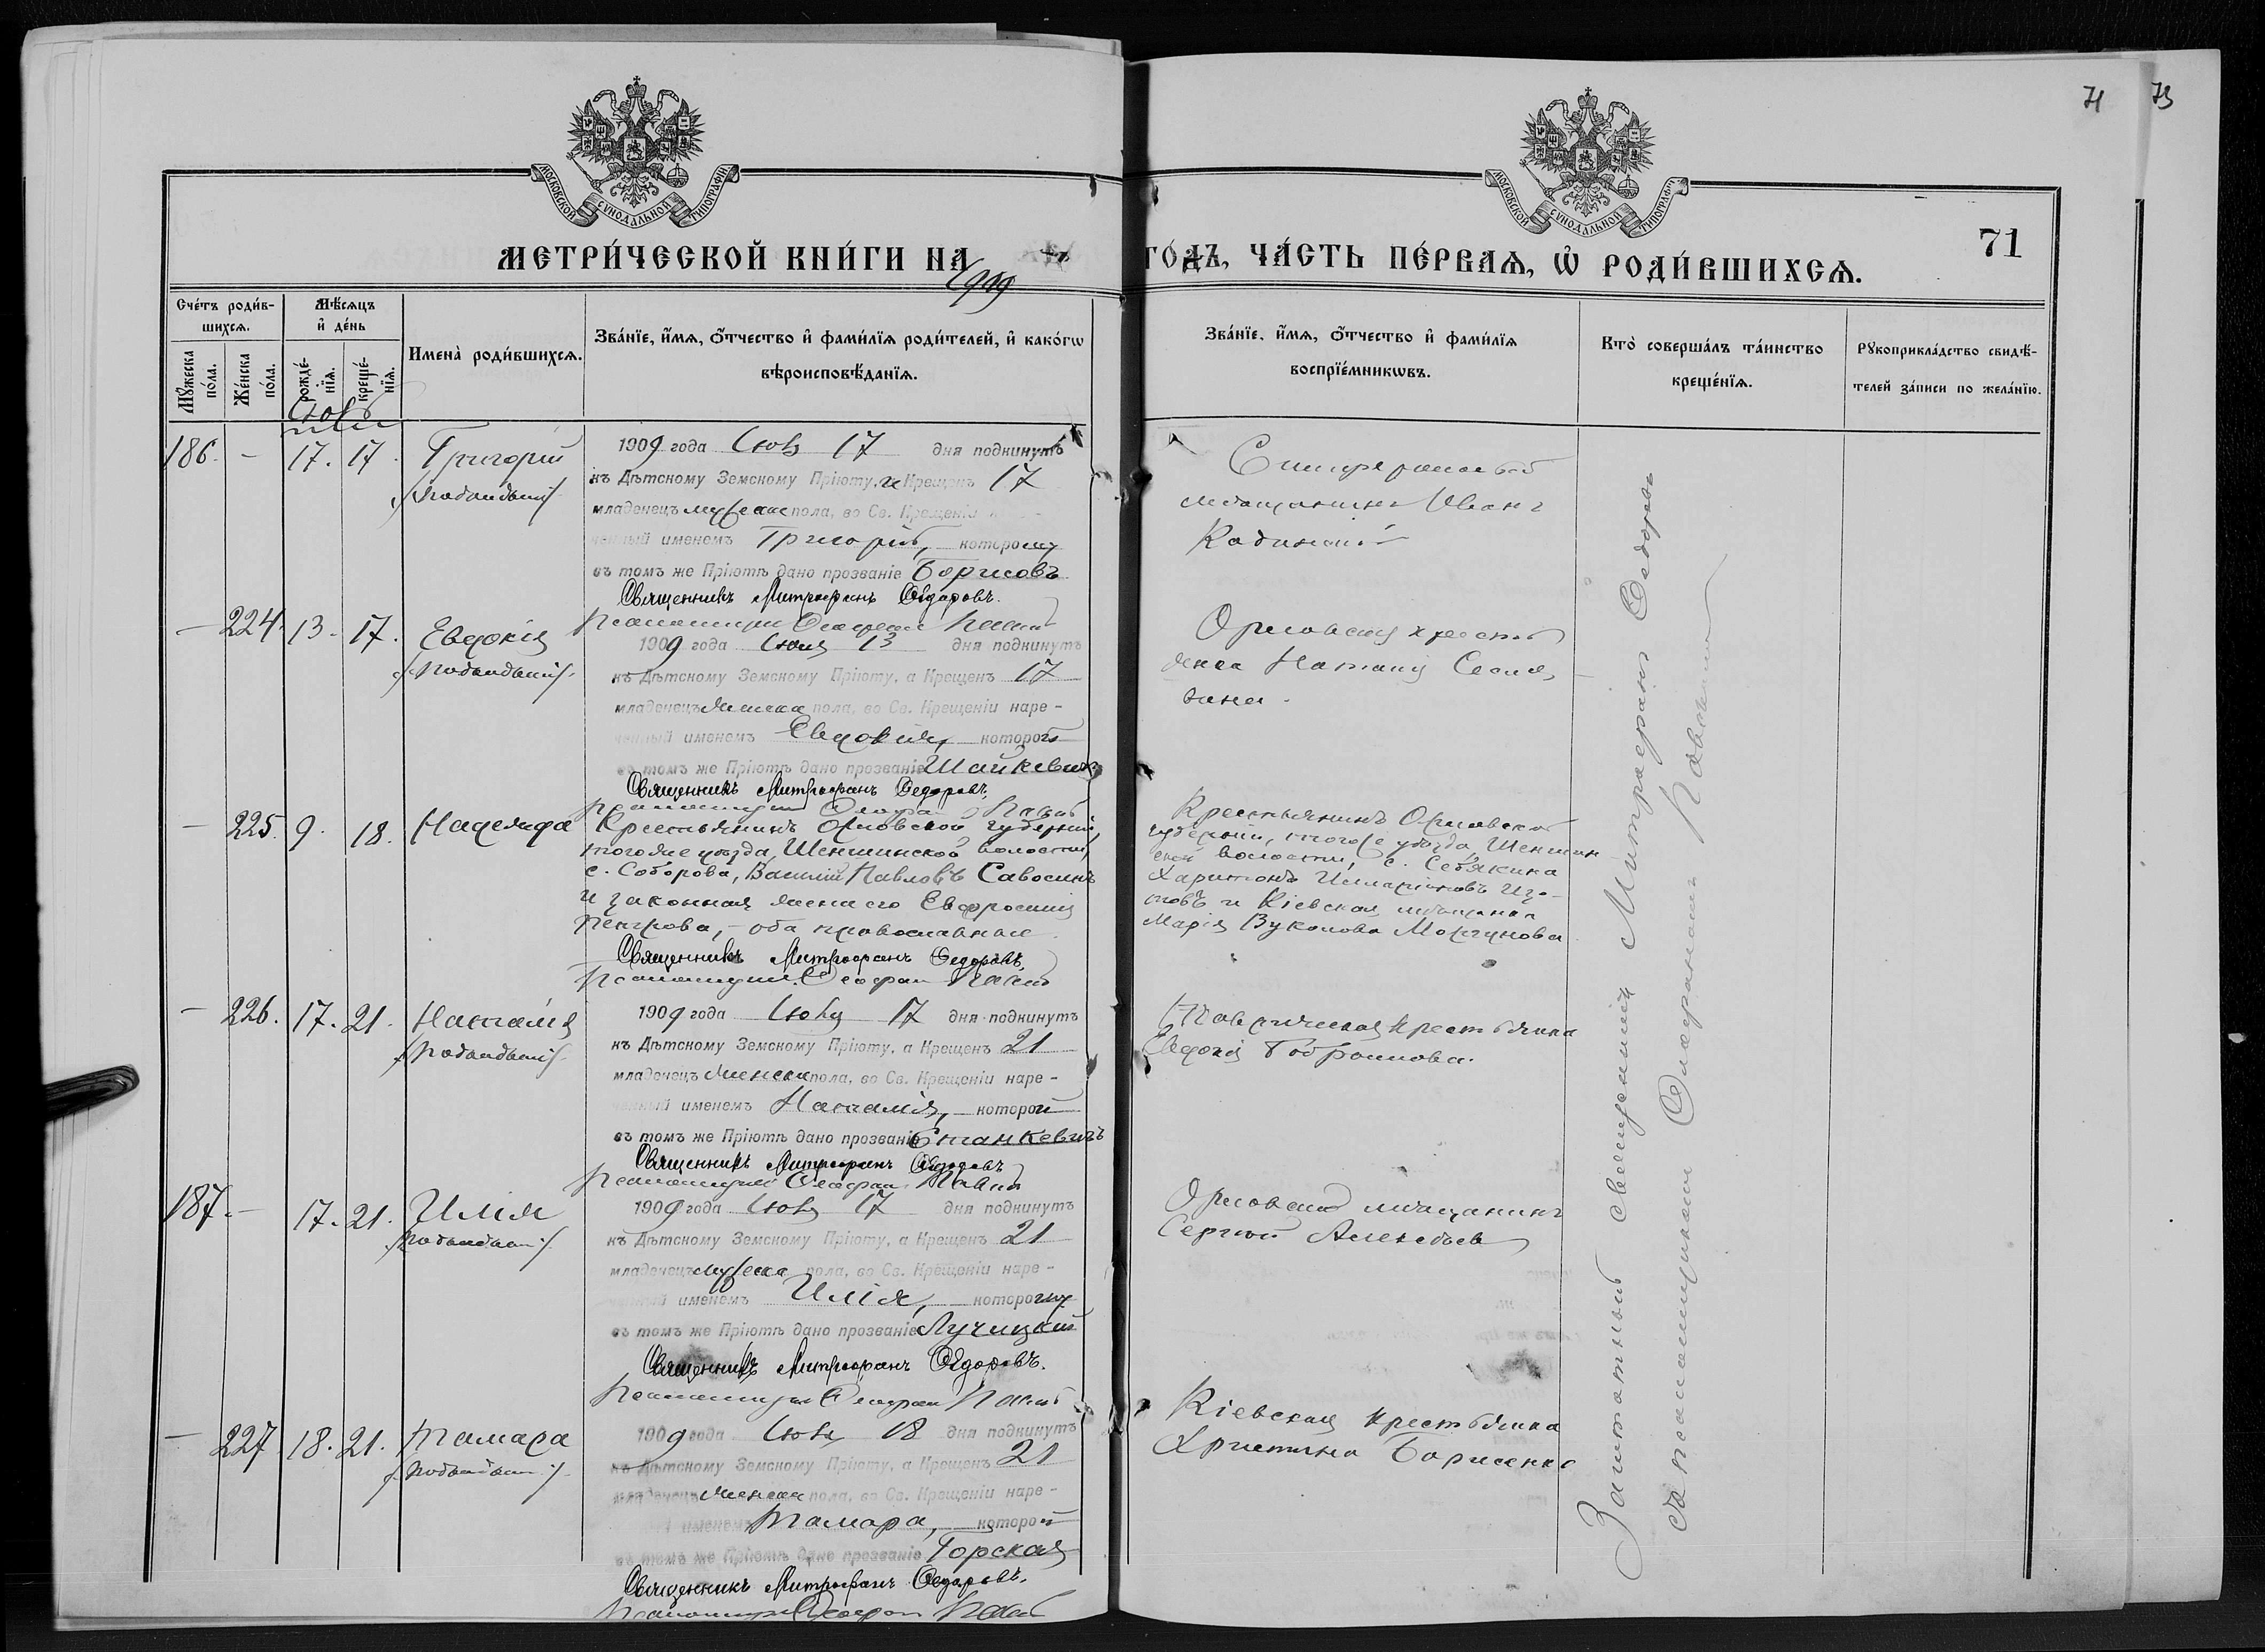 71 73
МОСКОВСКОЙ СУНОДАЛЬНОЙ ТИПОГРАФІИ
МОСКОВСКОЙ СУНОДАЛЬНОЙ ТИПОГРАФІИ
МЕТРИ́ЧЕСКОЙ КНИ́ГИ НА 1909
ГО́ДЪ, ЧА́СТЬ ПЕ́РВАѦ, Ѡ РОДИ́ВШИХСѦ.
71
Сче́тъ роди́в-
шихсѧ.
Мꙋ́жеска
по́ла.
Же́нска
по́ла.
Мѣ́сѧцъ
и҆ де́нь
рожде́-
нїѧ.
креще́-
нїѧ.
Имена̀ роди́вшихсѧ.
Зва́нїе, и҆́мѧ, ѻ҆́тчество и҆ фами́лїѧ роди́телей, и҆ како́гѡ
вѣроисповѣ́данїѧ.
Зва́нїе, и҆́мѧ, ѻ҆́тчество и҆ фами́лїѧ
воспрїе́мникѡвъ.
Кто̀ соверша́лъ та́инство
креще́нїѧ.
Рꙋкоприкла́дство свидѣ́-
телей за́писи по жела́нїю.
186. - 17. 17. Григорій
1909 года Іюля 17 дня подкинутъ
къ Дѣтскому Земскому Пріюту, а Крещенъ 17
младенецъ мужеска пола, во Св. Крещеніи
ченный именемъ Григорій, которому
въ томъ же Пріютѣ дано прозваніе Борисовъ
Священникъ Митрофанъ Ѳедоровъ.
Псаломщикъ
мѣщанинъ Иванъ
— 224. 13. 17. Евдокія
1909 года Іюля 13 дня подкинутъ
къ Дѣтскому Земскому Пріюту, а Крещенъ 17
младенецъ женска пола, во Св. Крещеніи наре-
ченный именемъ Евдокія, которой
въ томъ же Пріютѣ дано прозваніе Шайкевичъ
Священникъ Митрофанъ Ѳедоровъ.
Псаломщикъ
Орловская крестья
янка Наталія
— 225. 9. 18. Надежда
Крестьянинъ Орловской губерніи,
тогоже уѣзда, Шеншинской волости,
с. Соборова, Василій Павловъ Савосинъ
и законная жена его Евфросинія
Петрова, - оба православные
Священникъ Митрофанъ Ѳедоровъ
Псаломщикъ
Крестьянинъ Орловской
губерніи, тогоже уѣзда, Шеншин
ской волости, с. Себякина
Харитонъ Илларіоновъ Изо-
товъ и Кіевская мѣщанка
Марія Вуколова Моргунова
— 226. 17. 21. Наталія
1909 года Іюля 17 дня подкинутъ
къ Дѣтскому Земскому Пріюту, а Крещенъ 21
младенецъ женска пола, во Св. Крещеніи наре-
ченный именемъ Наталія, которой
въ томъ же Пріютѣ дано прозваніе Станкевичъ
Священникъ Митрофанъ Ѳедоровъ
Псаломщикъ
Таврическая крестьянка
Евдокія
187. - 17. 21. Илія
1909 года Іюля 17 дня подкинутъ
къ Дѣтскому Земскому Пріюту, а Крещенъ 21
младенецъ мужеска пола, во Св. Крещеніи наре-
ченный именемъ Илія, которому
въ томъ же Пріютѣ дано прозваніе Лучицкій
Священникъ Митрофанъ Ѳедоровъ.
Псаломщикъ
Орловскій мѣщанинъ
Сергій Алексѣевъ
— 227 18. 21. Тамара
1909 года Іюля 18 дня подкинутъ
къ Дѣтскому Земскому Пріюту, а Крещенъ 21
младенецъ женска пола, во Св. Крещеніи наре-
именемъ Тамара, которой
въ томъ же Пріютѣ дано прозваніе Горская
Священникъ Митрофанъ Ѳедоровъ.
Псаломщикъ
Кіевская крестьянка
Христина Борисенко
Заштатный священникъ Митрофанъ Ѳедоровъ
съ псаломщикомъ